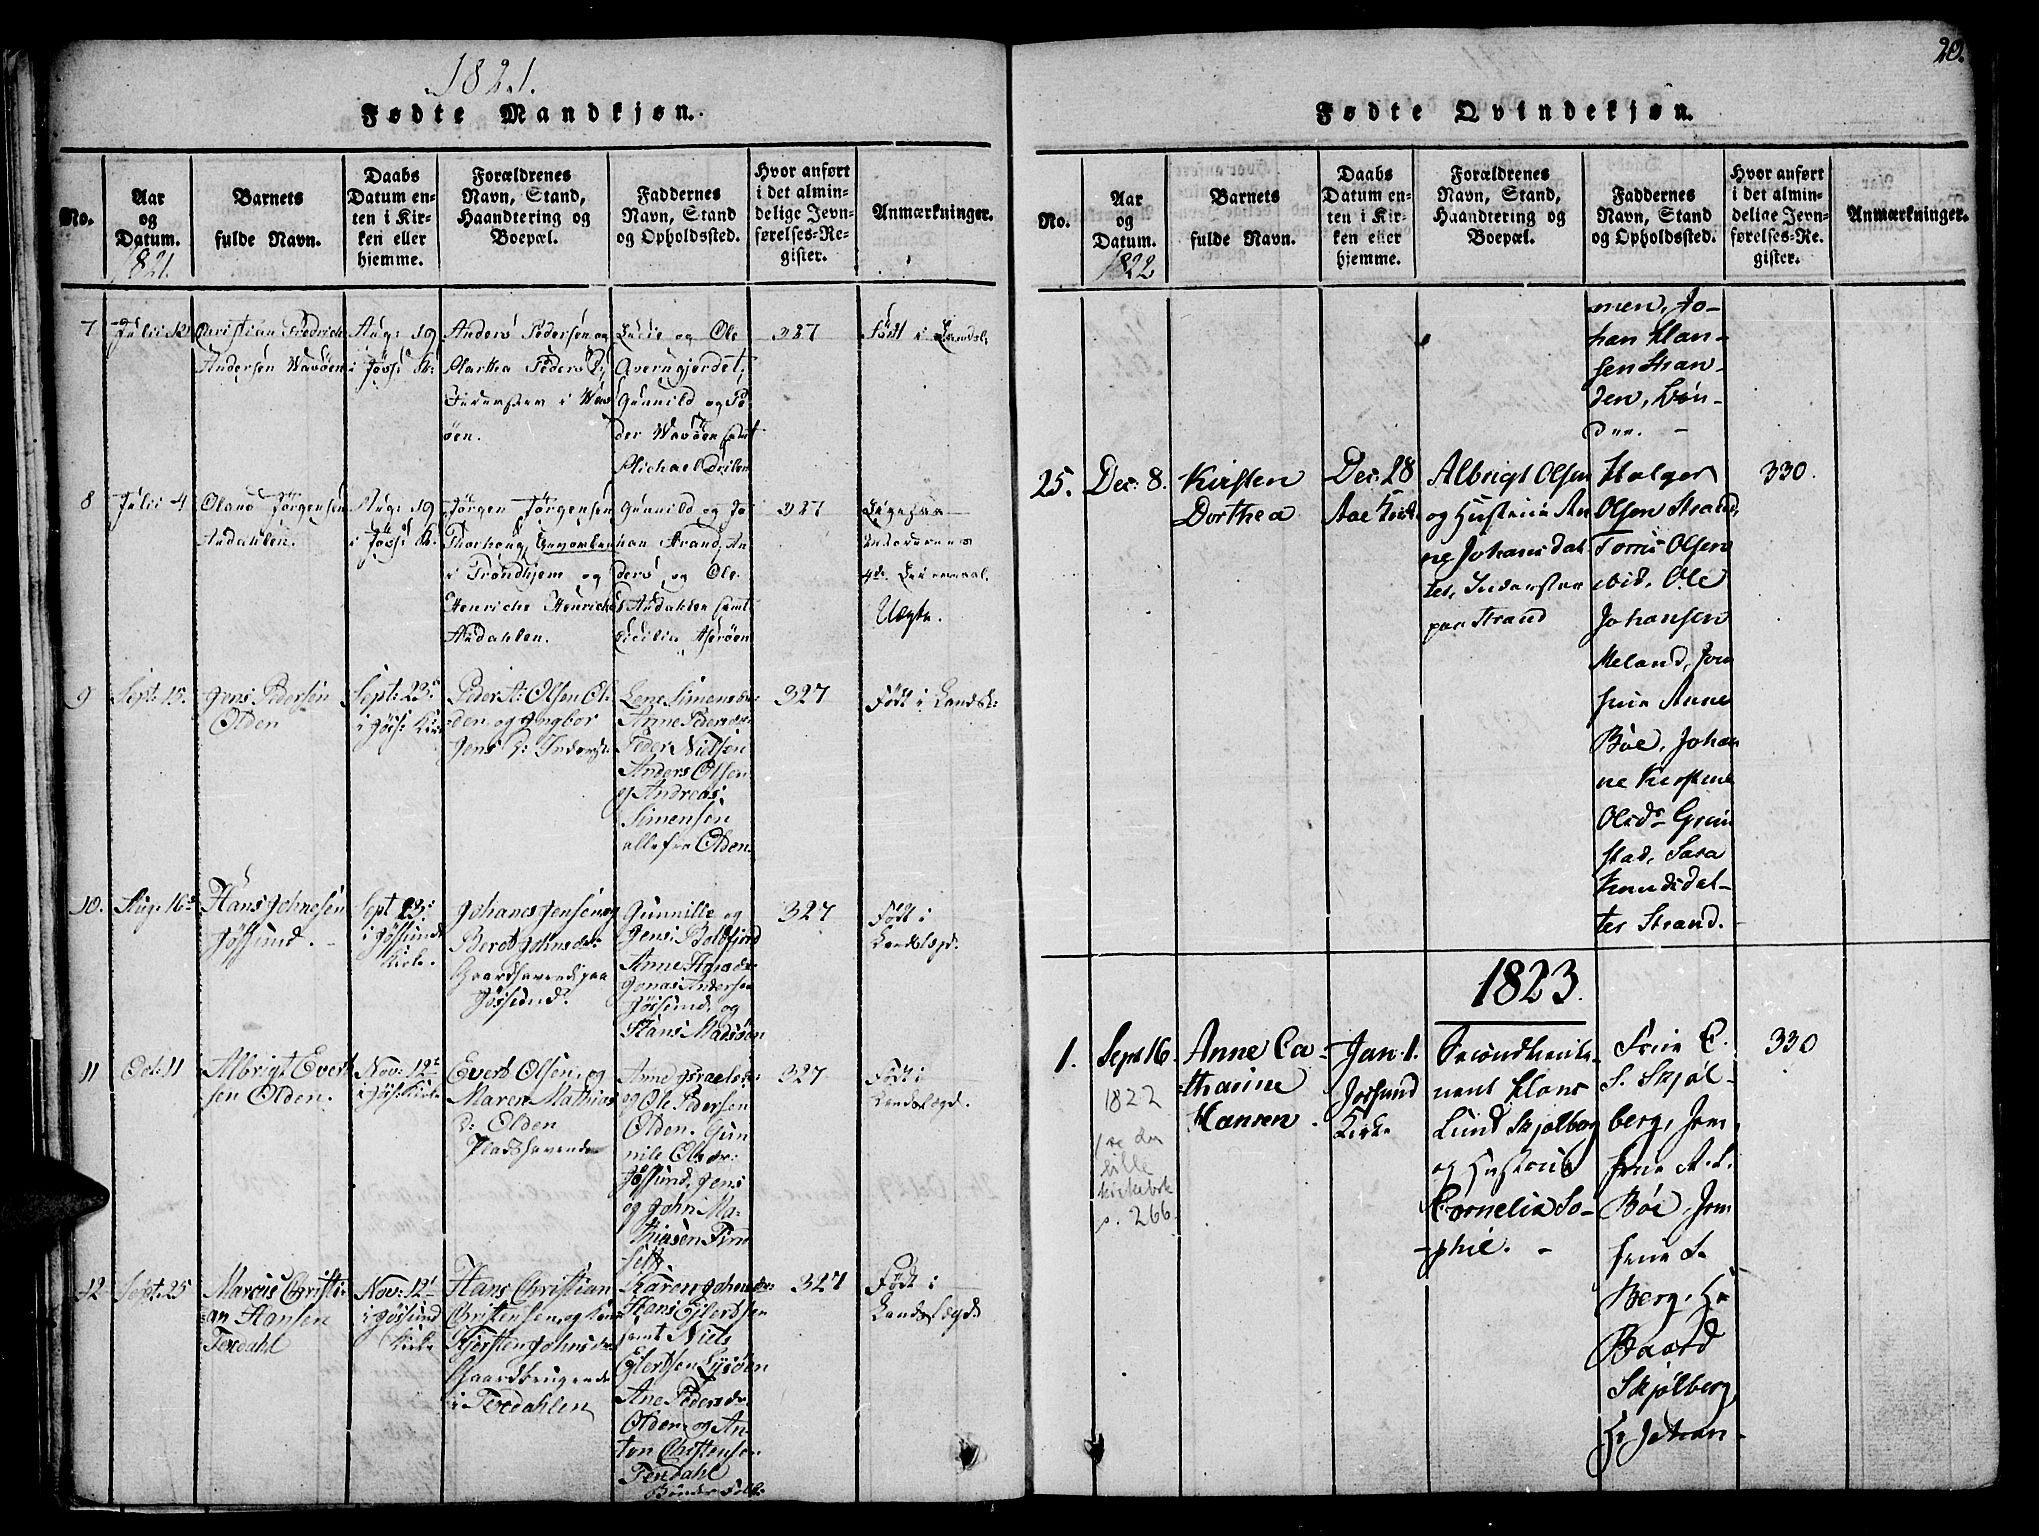 1821.
Fødte Mandkjøn.
No.
Aar
og
Datum.
1821.
Barnets
fulde Navn.
Daabs
Datum en-
ten i Kir-
ken eller
hjemme.
Forældrenes
Navn, Stand,
Haandtering og
Boepæl.
Faddernes
Navn, Stand
og Opholdssted.
Hvor anført
i det almin-
delige Jevn-
førelses-Re-
gister.
Anmærkninger.
7
Julii
Christian Fredrich
Andersen Wavøen
Aug: 19
i Jøss: K:
Anders Pedersen og
Martha Peders D:
Inderster i Wav
øen.
Lucie og Ole
Averugjerdet,
Gunnild og Pe-
der Wavøen samt
Michael
327
Født i Landsl,
8
Julii 4
Olaus Jørgensen
Audahlen.
Aug: 19
i Jøss: K:
Jørgen Jørgensen
i Trondhjem og
Henriche Henrichs
Audahlen.
Gunnild og Jo
han Strand, An
ders og Ole
Audahlen samt
Cicilia
327
4de Leiermaal.
Uegte.
9
Sept: 15.
Jens Pedersen
Olden
Sept: 23
i Jøss: Kirke
Peder A: Olsen Ol-
den og Ingbor
Jens D: Inderst:
Lene Simensdr
Anne Pedersdr
Peder Nielsen
Anders Olsen
og Andreas
Simensen
alle fra Olden.
327
Født i Landsl:
10.
Aug. 16
Hans Johnesen
Jøssund.
Sept 23
i Jøssund
Kirke.
Johanes Jensen og
Beret Johnsdr
Gaardhavend paa
Jøssund.
Gunnille og
Jens Boldfjord
Anne
Jonas Andersen
Jøssund, og
Hans Madsøen
327
Født i
Landslægd.
11
Oct: 11
Albrigt Evert
sen Olden.
Nov: 12
i Jøss: Kirke
Evert Olsen og
Maren Mathias
D: Olden
Pladshavende
Anne Israelsdr
og Ole Pedersen
Olden. Gun
nile Olsdr:
Jøssund, Jens
og John Ma-
thiasen
327
Født i
Landslægd.
12
Sept: 25
Marcus Christi
an Hansen
Teredahl
Nov: 12
i Jøssund
Kirke
Hans Christian
Christensen og Kone
Kjersten Johnsdr
Gaardbrugende
i Teredahlen
Karen Johnsdr
Hans Ejlertsen
samt Niels
Ejlertsen Lysøen
Ane Pedersdr
Olden og An
ton Christensen
Teredahl
Bønder Folk
327
Født i
Landslægd
20.
Fødte Qvindekjøn.
No.
Aar
og
Datum.
1822
Barnets
fulde Navn.
Daabs
Datum en-
ten i Kir-
ken eller
hjemme.
Forældrenes
Navn, Stand,
Haandtering og
Boepæl.
Faddernes
Navn, Stand
og Opholdssted.
Hvor anført
i det almin-
delige Jevn-
førelses-Re-
gister.
Anmærkninger.
men, Jo-
han Han-
sen Stran-
den,
25.
Dec: 8.
Kirsten
Dorthea
Dec: 28
Aae Kirk.
Albrigt Olsen
og Hustrue An
ne Johansdat
ter, Inderster
paa Strand
Holger
Olsen Strand,
Torris Olsen
ibid, Ole
Johansen
Meland, Jom
frue Anne
Bøe, Johan
ne Kirstine
Olsdr Grun
stad, Sara
Knudsdat-
ter Strand.
330
1823.
1.
Sept 16
1822
se den
lille
kirkebok
p. 266.
Anne Ca-
tharine
Hansen.
Jan: 1.
Jossund
Kirke
Secondlieute-
nant Hans
Lund Skjølberg
og Hustrue
Cornelia So-
phie.
Frue E.
S. Skjøl-
berg, Jom
frue A. L.
Bøe, Jom
frue S.
Berg, Hr
Baard
Skjølberg,
Hr Johan-
330